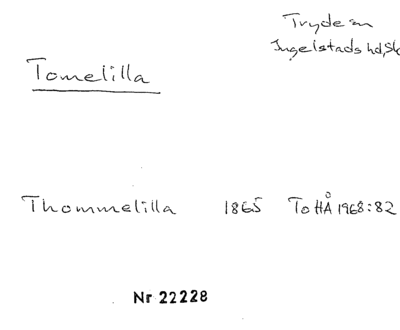 Tryde sn
Ingelstads hd, Sk
Tomelilla
Thommelilla 1865 ToHÅ 1968:82
Nr 22228